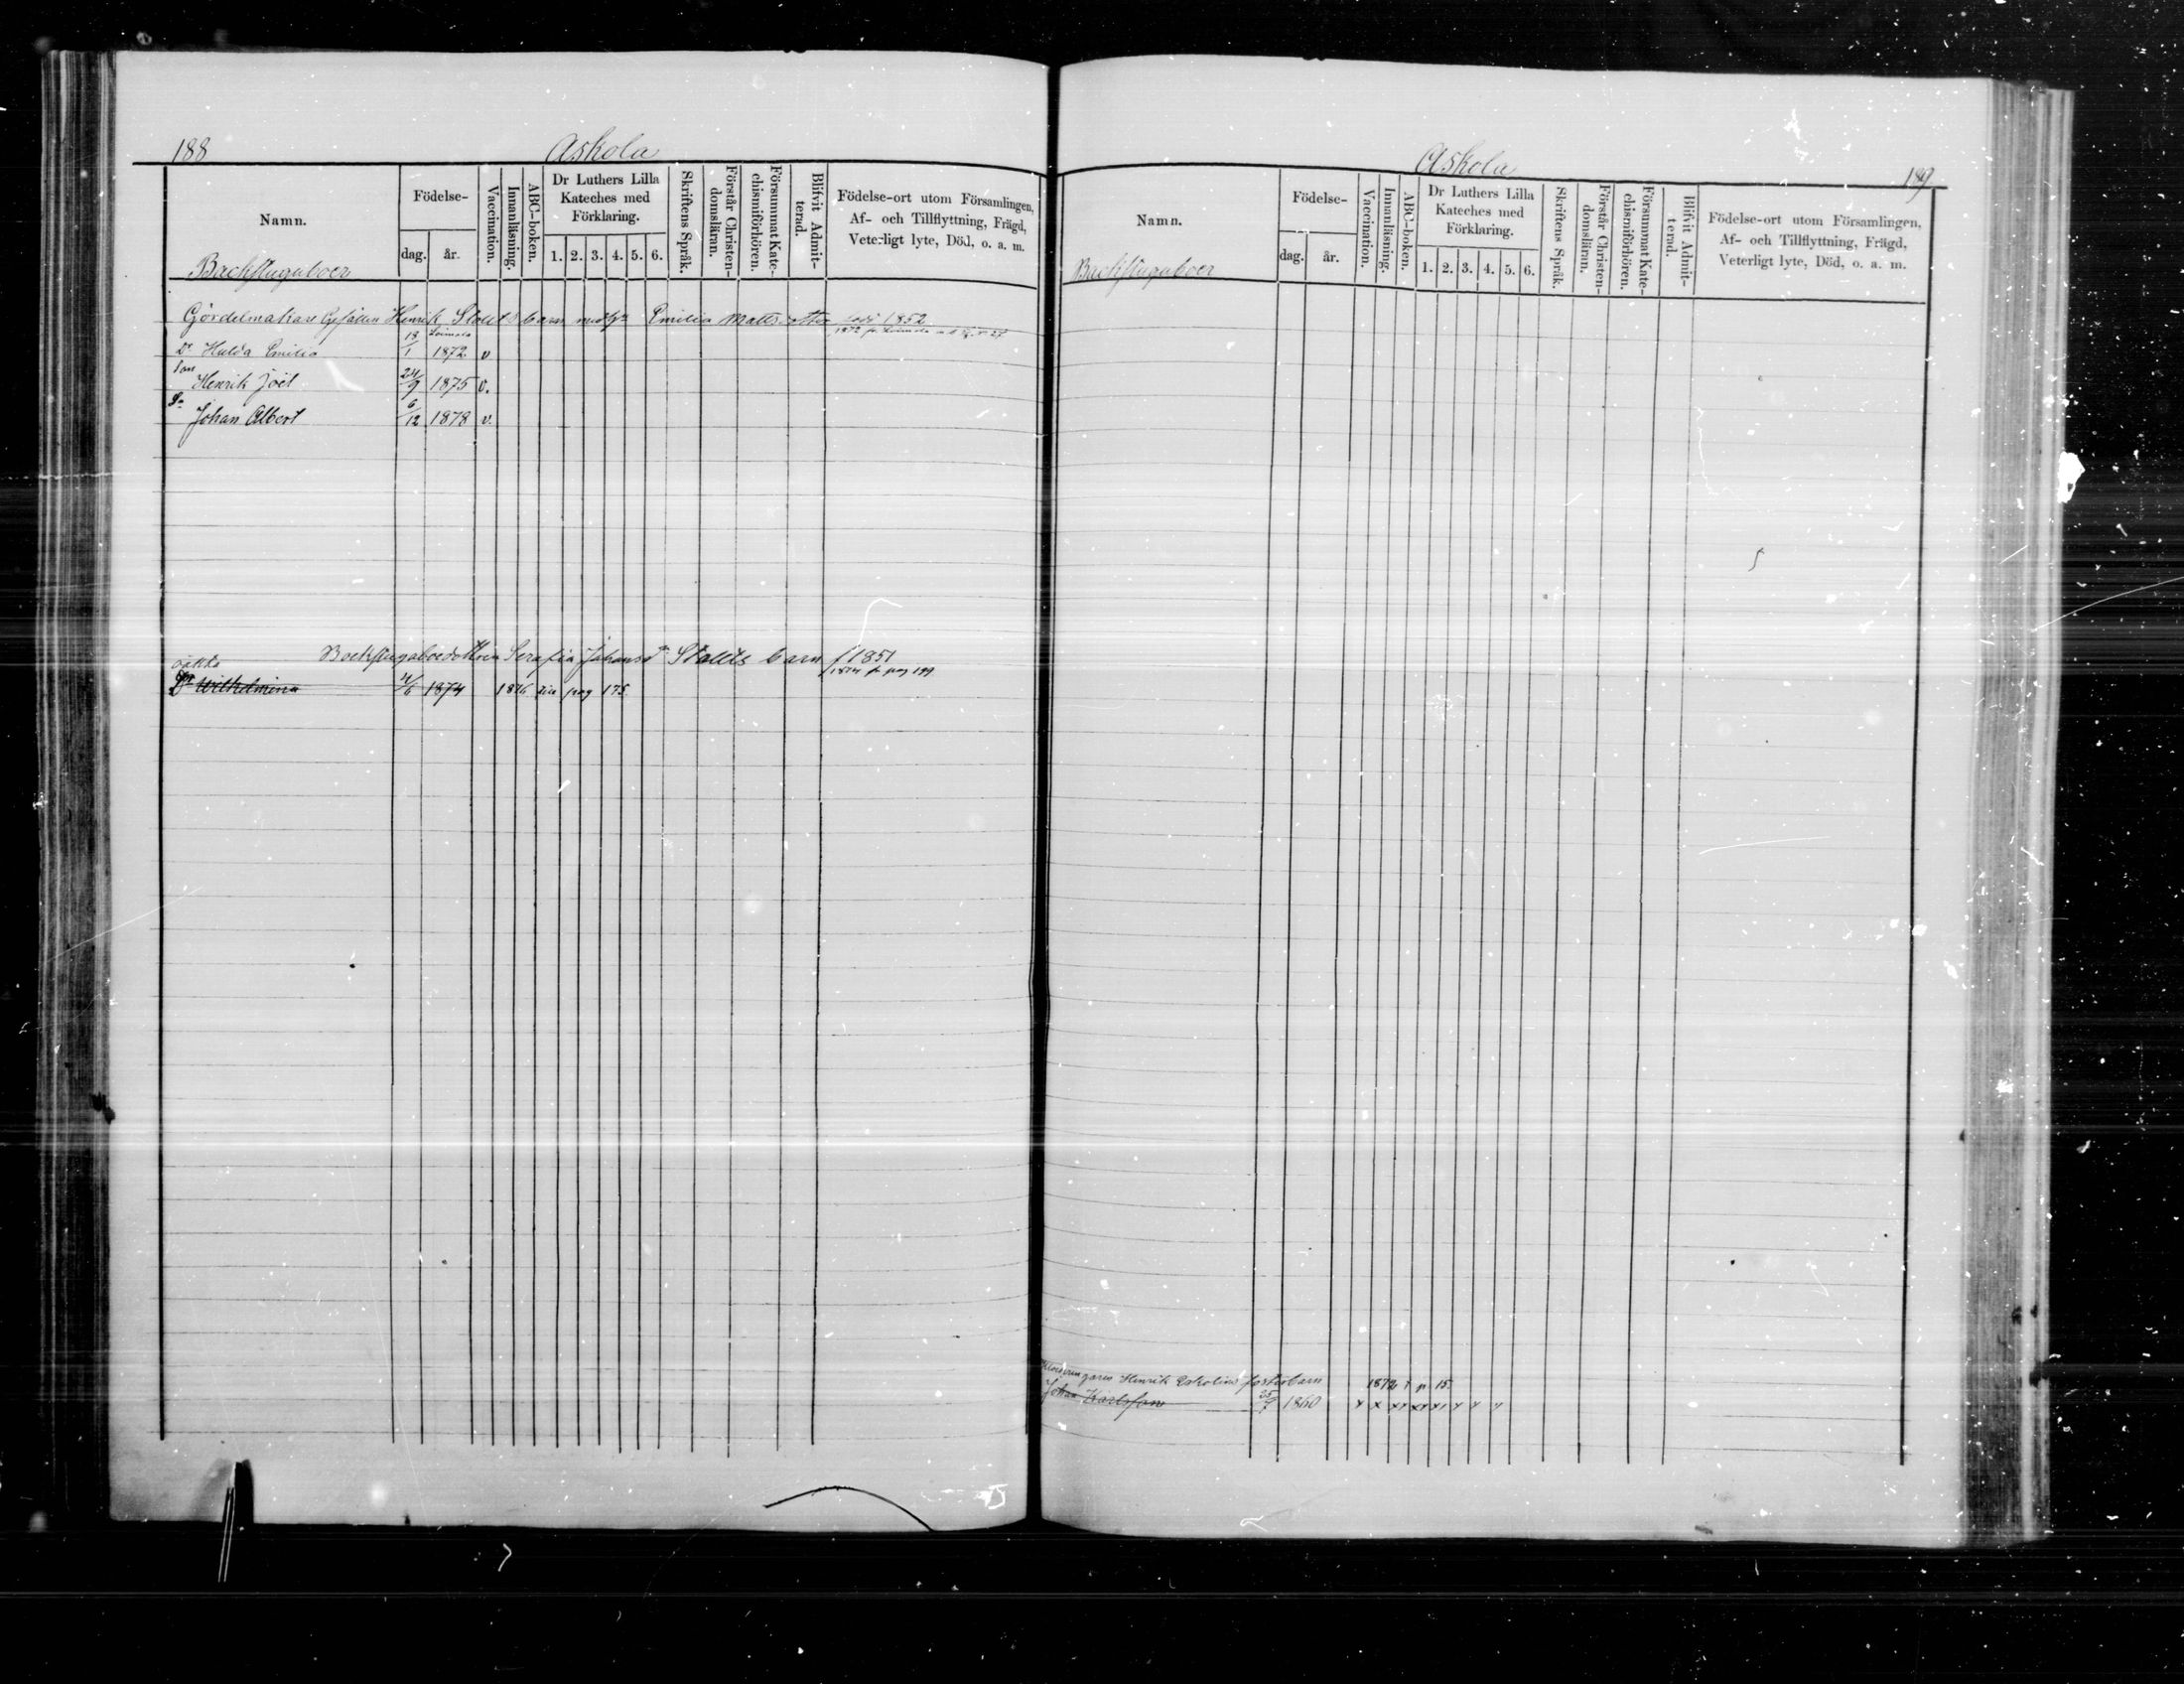 188
Askola
Namn.
Födelse-
dag. år.
Vaccination.
Innanläsning.
ABC-boken.
Dr Luthers Lilla
Kateches med
Förklaring.
1. 2. 3. 4. 5. 6.
Skriftens Språk.
Förstår Christen-
domsläran.
Försummat Kate-
chismiförhören.
Blifvit Admit-
terad.
Födelse-ort utom Församlingen,
Af- och Tillflyttning, Frägd,
Veterligt lyte, Död, o. a. m.
Backstuguboer
Gördelmakare Gesällen Henrik Ståhls barn Emilia Matts 1852
Dr Hulda Emilia 18/1 1872 v
Son
Henrik Joël 24/9 1875 v.
Sn
Johan Albert 6/12 1878 v.
Serafia Johansdr barn f 1851
oäkta
Dr Wilhelmina 4/6 1874 1876 pag 175.
Askola
189
Namn.
Födelse-
dag. år.
Vaccination.
Innanläsning.
ABC-boken.
Dr Luthers Lilla
Kateches med
Förklaring.
1. 2. 3. 4. 5. 6.
Skriftens Språk.
Förstår Christen-
domsläran.
Försummat Kate-
chismiförhören.
Blifvit Admit-
terad.
Födelse-ort utom Församlingen,
Af- och Tillflyttning, Frägd,
Veterligt lyte, Död, o. a. m.
Backstuguboer
Henrik Eskolins fosterbarn 1872 p. 15.
Johan Karlsson 25/7 1860